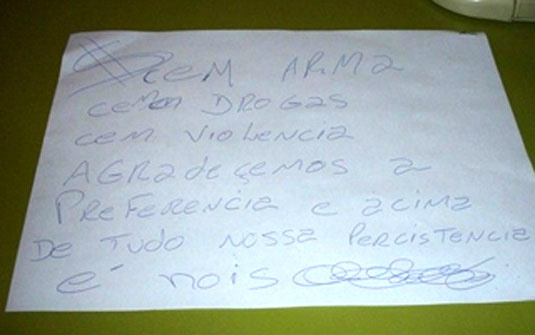 cem ARMA
cem DROGAS
cem violencia
AGRadeçemos a
PReFerencia e acima
De Tudo nossa Percistencia
e' nois